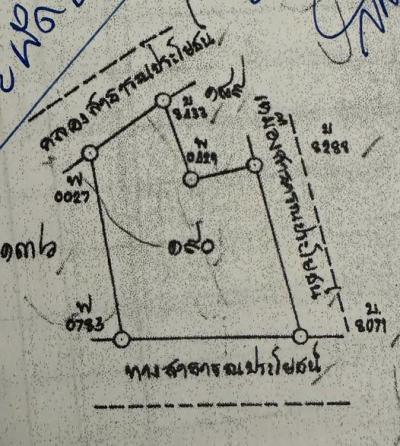 คลองสาธารณประโยชน์
๑๘๙
บ
8433
พ
0429
เหมืองสาธารณประโยชน์
บ
8288
พ
0027
๑๓๖
๑๙๐
พ
0783
บ.
8071
ทางสาธารณประโยชน์